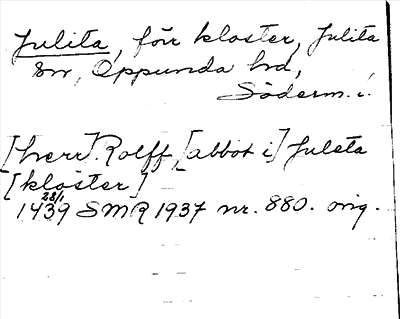 Julita, förr kloster, Julita
sn, Oppunda hd,
Söderm. l.
[herr] Rolff, [abbot i] Juleta
[kloster]
28/1
1439 SMR 1937 nr. 880. orig.